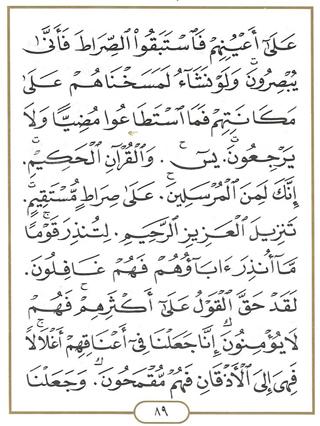 عَلَىٰٓ أَعْيُنِهِمْ فَٱسْتَبَقُوا۟ ٱلصِّرَٰطَ فَأَنَّىٰ
يُبْصِرُونَ وَلَوْ نَشَآءُ لَمَسَخْنَاهُمْ عَلَىٰ
مَكَانَتِهِمْ فَمَا ٱسْتَطَاعُوا مُضِيًّا وَلَا
يَرْجِعُونَ. يسٓ . وَٱلْقُرْآنِ ٱلْحَكِيمِ.
إِنَّكَ لَمِنَ ٱلْمُرْسَلِينَ. عَلَىٰ صِرَاطٍ مُسْتَقِيمٍ.
تَنْزِيلَ ٱلْعَزِيزِ ٱلرَّحِيمِ. لِتُنْذِرَ قَوْمًا
مَّآ أُنْذِرَ ءَابَآؤُهُمْ فَهُمْ غَافِلُونَ.
لَقَدْ حَقَّ ٱلْقَوْلُ عَلَىٰٓ أَكْثَرِهِمْ فَهُمْ
لَا يُؤْمِنُونَ إِنَّا جَعَلْنَا فِىٓ أَعْنَاقِهِمْ أَغْلَالًا
فَهِىَ إِلَى ٱلْأَذْقَانِ فَهُمْ مُقْمَحُونَ. وَجَعَلْنَا
٨٩